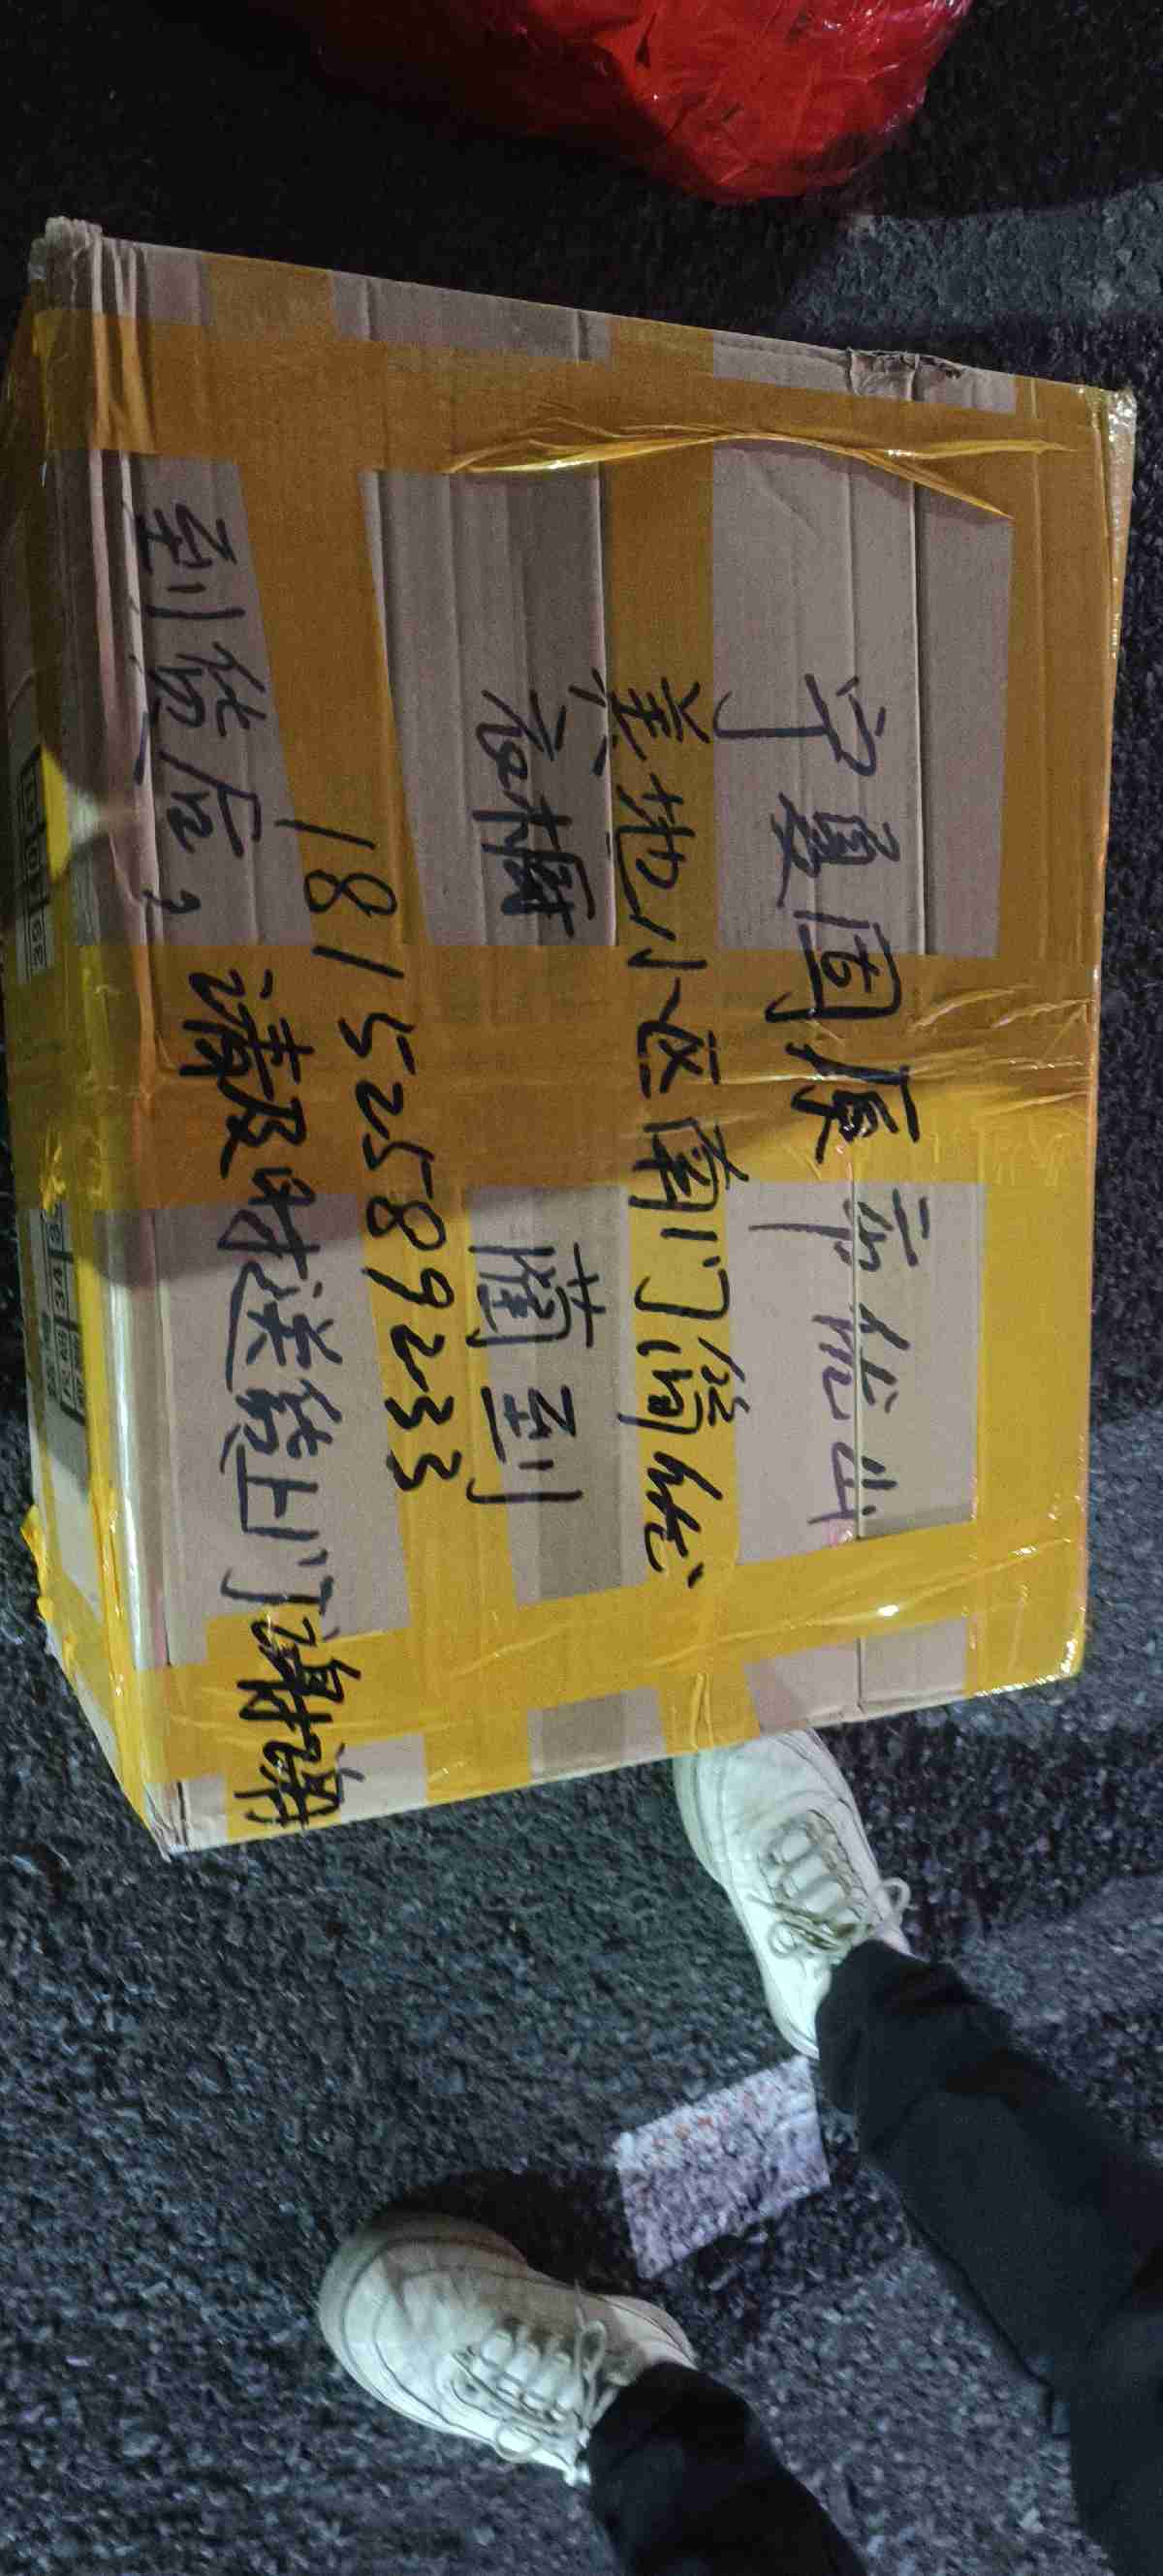 宁夏固原市
美地小区南门简
衣橱 蔺到
18152589233
到货后，请及时送货上门谢谢